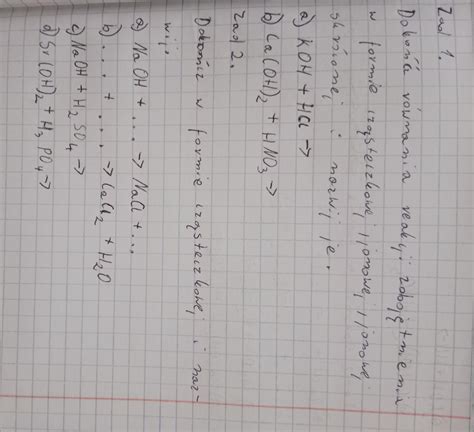 Zad 1.
Dokończ równania reakcji zobojętnienia
w formie cząsteczkowej, jonowej, jonowej
skróconej i nazwij je.
a) KOH + HCl →
b) Ca(OH)₂ + HNO₃ →
Zad 2.
Dokończ w formie cząsteczkowej i naz-
wij:
a) NaOH + ... → NaCl + ...
b) .... + .... → CaCl₂ + H₂O
c) NaOH + H₂SO₄ →
d) Sr(OH)₂ + H₃PO₄ →